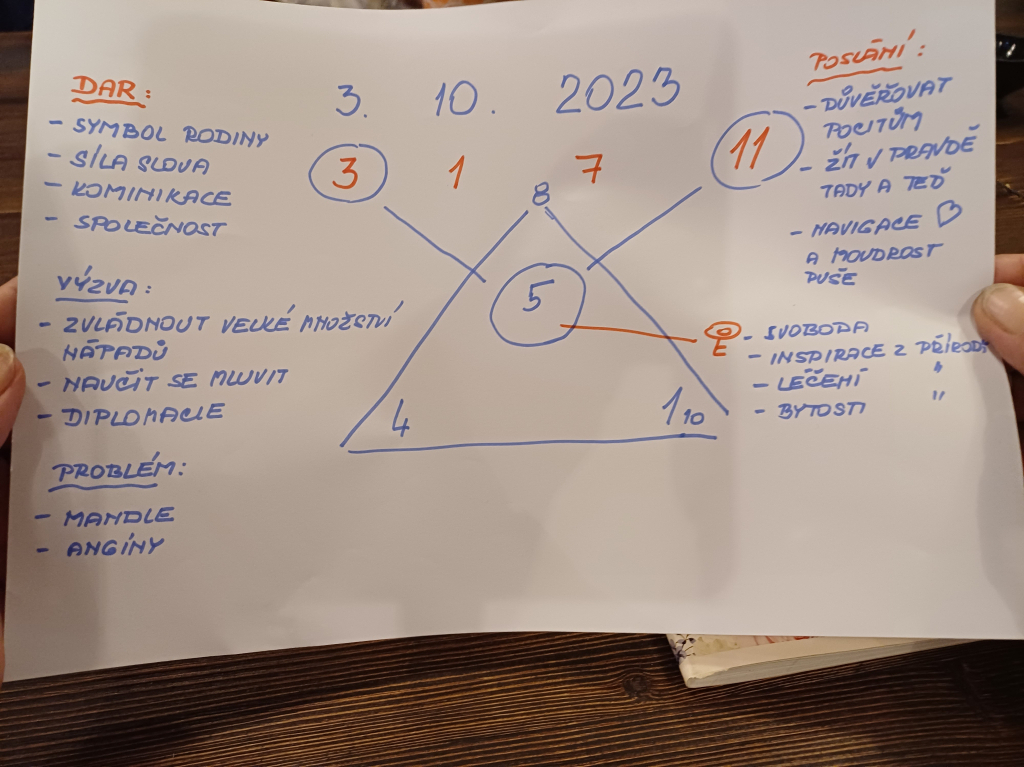 DAR:
- SYMBOL RODINY
- SÍLA SLOVA
- KOMINIKACE
- SPOLEČNOST
VÝZVA:
- ZVLÁDNOUT VELKÉ MNOŽSTVÍ
NÁPADŮ
- NAUČIT SE MLUVIT
- DIPLOMACIE
PROBLÉM:
- MANDLE
- ANGÍNY
3. 10. 2023
3 1 7 11
8
5
4 1 10
POSLÁNÍ:
- DŮVĚŘOVAT
POCITŮM
- ŽÍT V PRAVDĚ
TADY A TEĎ
- NAVIGACE ♡
A MOUDROST
DUŠE
E
- SVOBODA
- INSPIRACE Z PŘÍRODY
- LÉČENÍ "
- BYTOSTI "